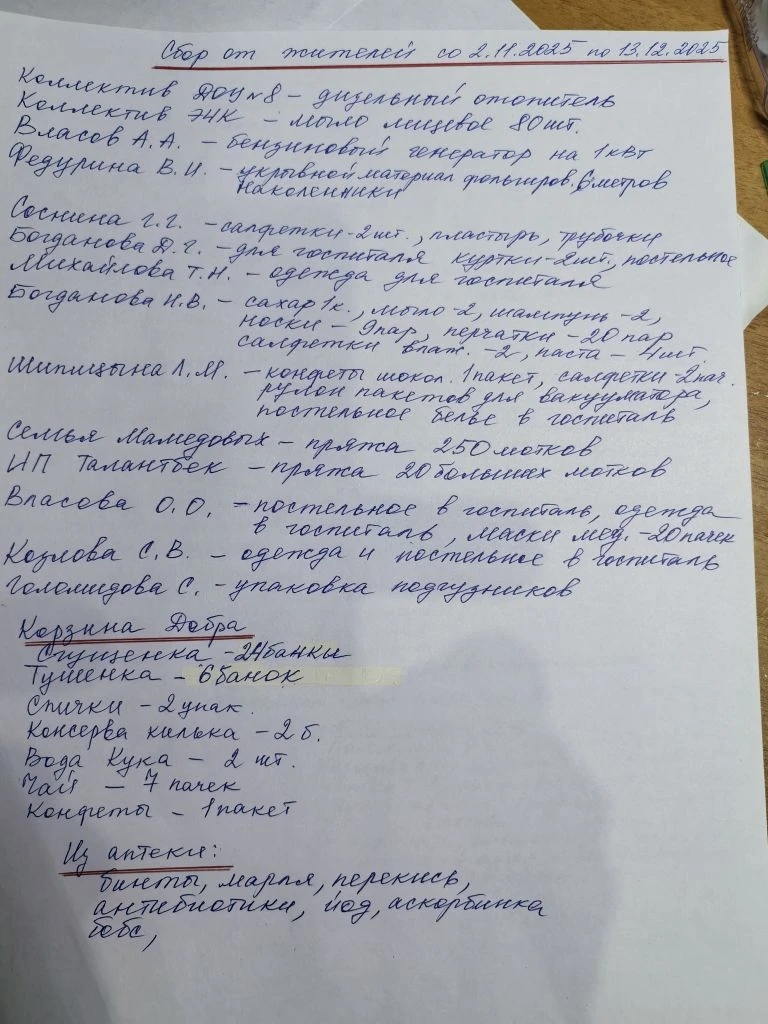 Сбор от жителей со 2.11.2025 по 13.12.2025
Коллектив ДОУ №8 – дизельный отопитель
Коллектив ЭЧК – мыло лицевое 80 шт.
Власов А.А. – бензиновый генератор на 1 кВт
Федурина В.И. – укрывной материал фольгиров. 6 метров
наколенники
Соснина Г.Г. – салфетки - 2 шт., пластырь, трубочки
Богданова Д.Г. – для госпиталя куртки - 2 шт., постельное
Михайлова Т.Н. – одежда для госпиталя
Богданова Н.В. – сахар 1к., мыло - 2, шампунь - 2,
носки – 9 пар, перчатки – 20 пар
салфетки влаж. - 2, паста – 4 шт.
Шипицына Л.М. – конфеты шокол. 1 пакет, салфетки - 2 пач.
рулон пакетов для вакууматора,
постельное белье в госпиталь
Семья Мамедовых – пряжа 250 мотков
ИП Талантбек – пряжа 20 больших мотков
Власова О.О. – постельное в госпиталь, одежда
в госпиталь, маски мед. - 20 пачек
Козлова С.В. – одежда и постельное в госпиталь
Голомидова С. – упаковка подгузников
Корзина Добра
Сгущенка - 24 банки
Тушенка – 6 банок
Спички – 2 упак.
Консерва килька – 2 б.
Вода Кука – 2 шт.
Чай – 7 пачек
Конфеты – 1 пакет
Из аптеки:
бинты, марля, перекись,
антибиотики, йод, аскорбинка